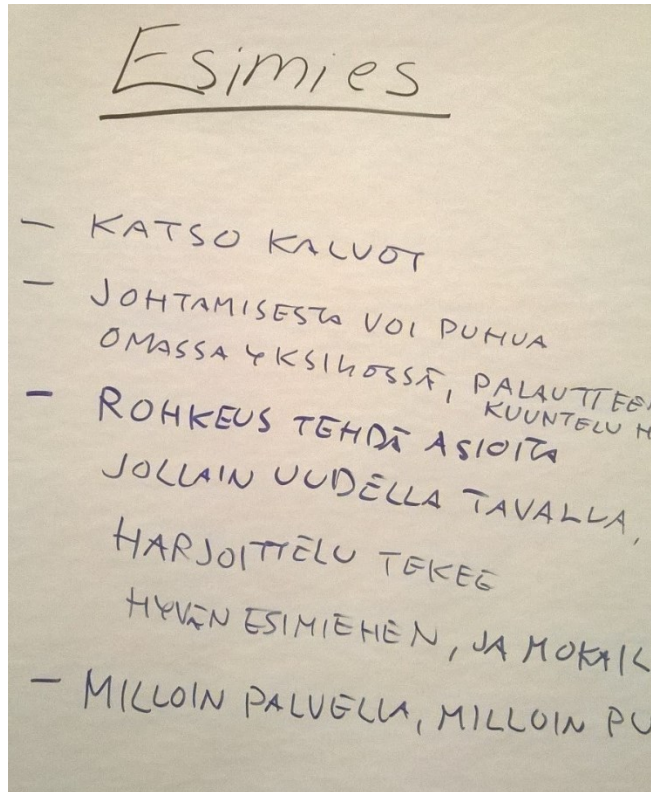 Esimies
- KATSO KALVOT
- JOHTAMISESTA VOI PUHUA
OMASSA YKSIKÖSSÄ, PALAUTTEEN
KUUNTELU H
- ROHKEUS TEHDÄ ASIOITA
JOLLAIN UUDELLA TAVALLA,
HARJOITTELU TEKEE
HYVÄN ESIMIEHEN, JA MOKAIL
- MILLOIN PALVELLA, MILLOIN PU